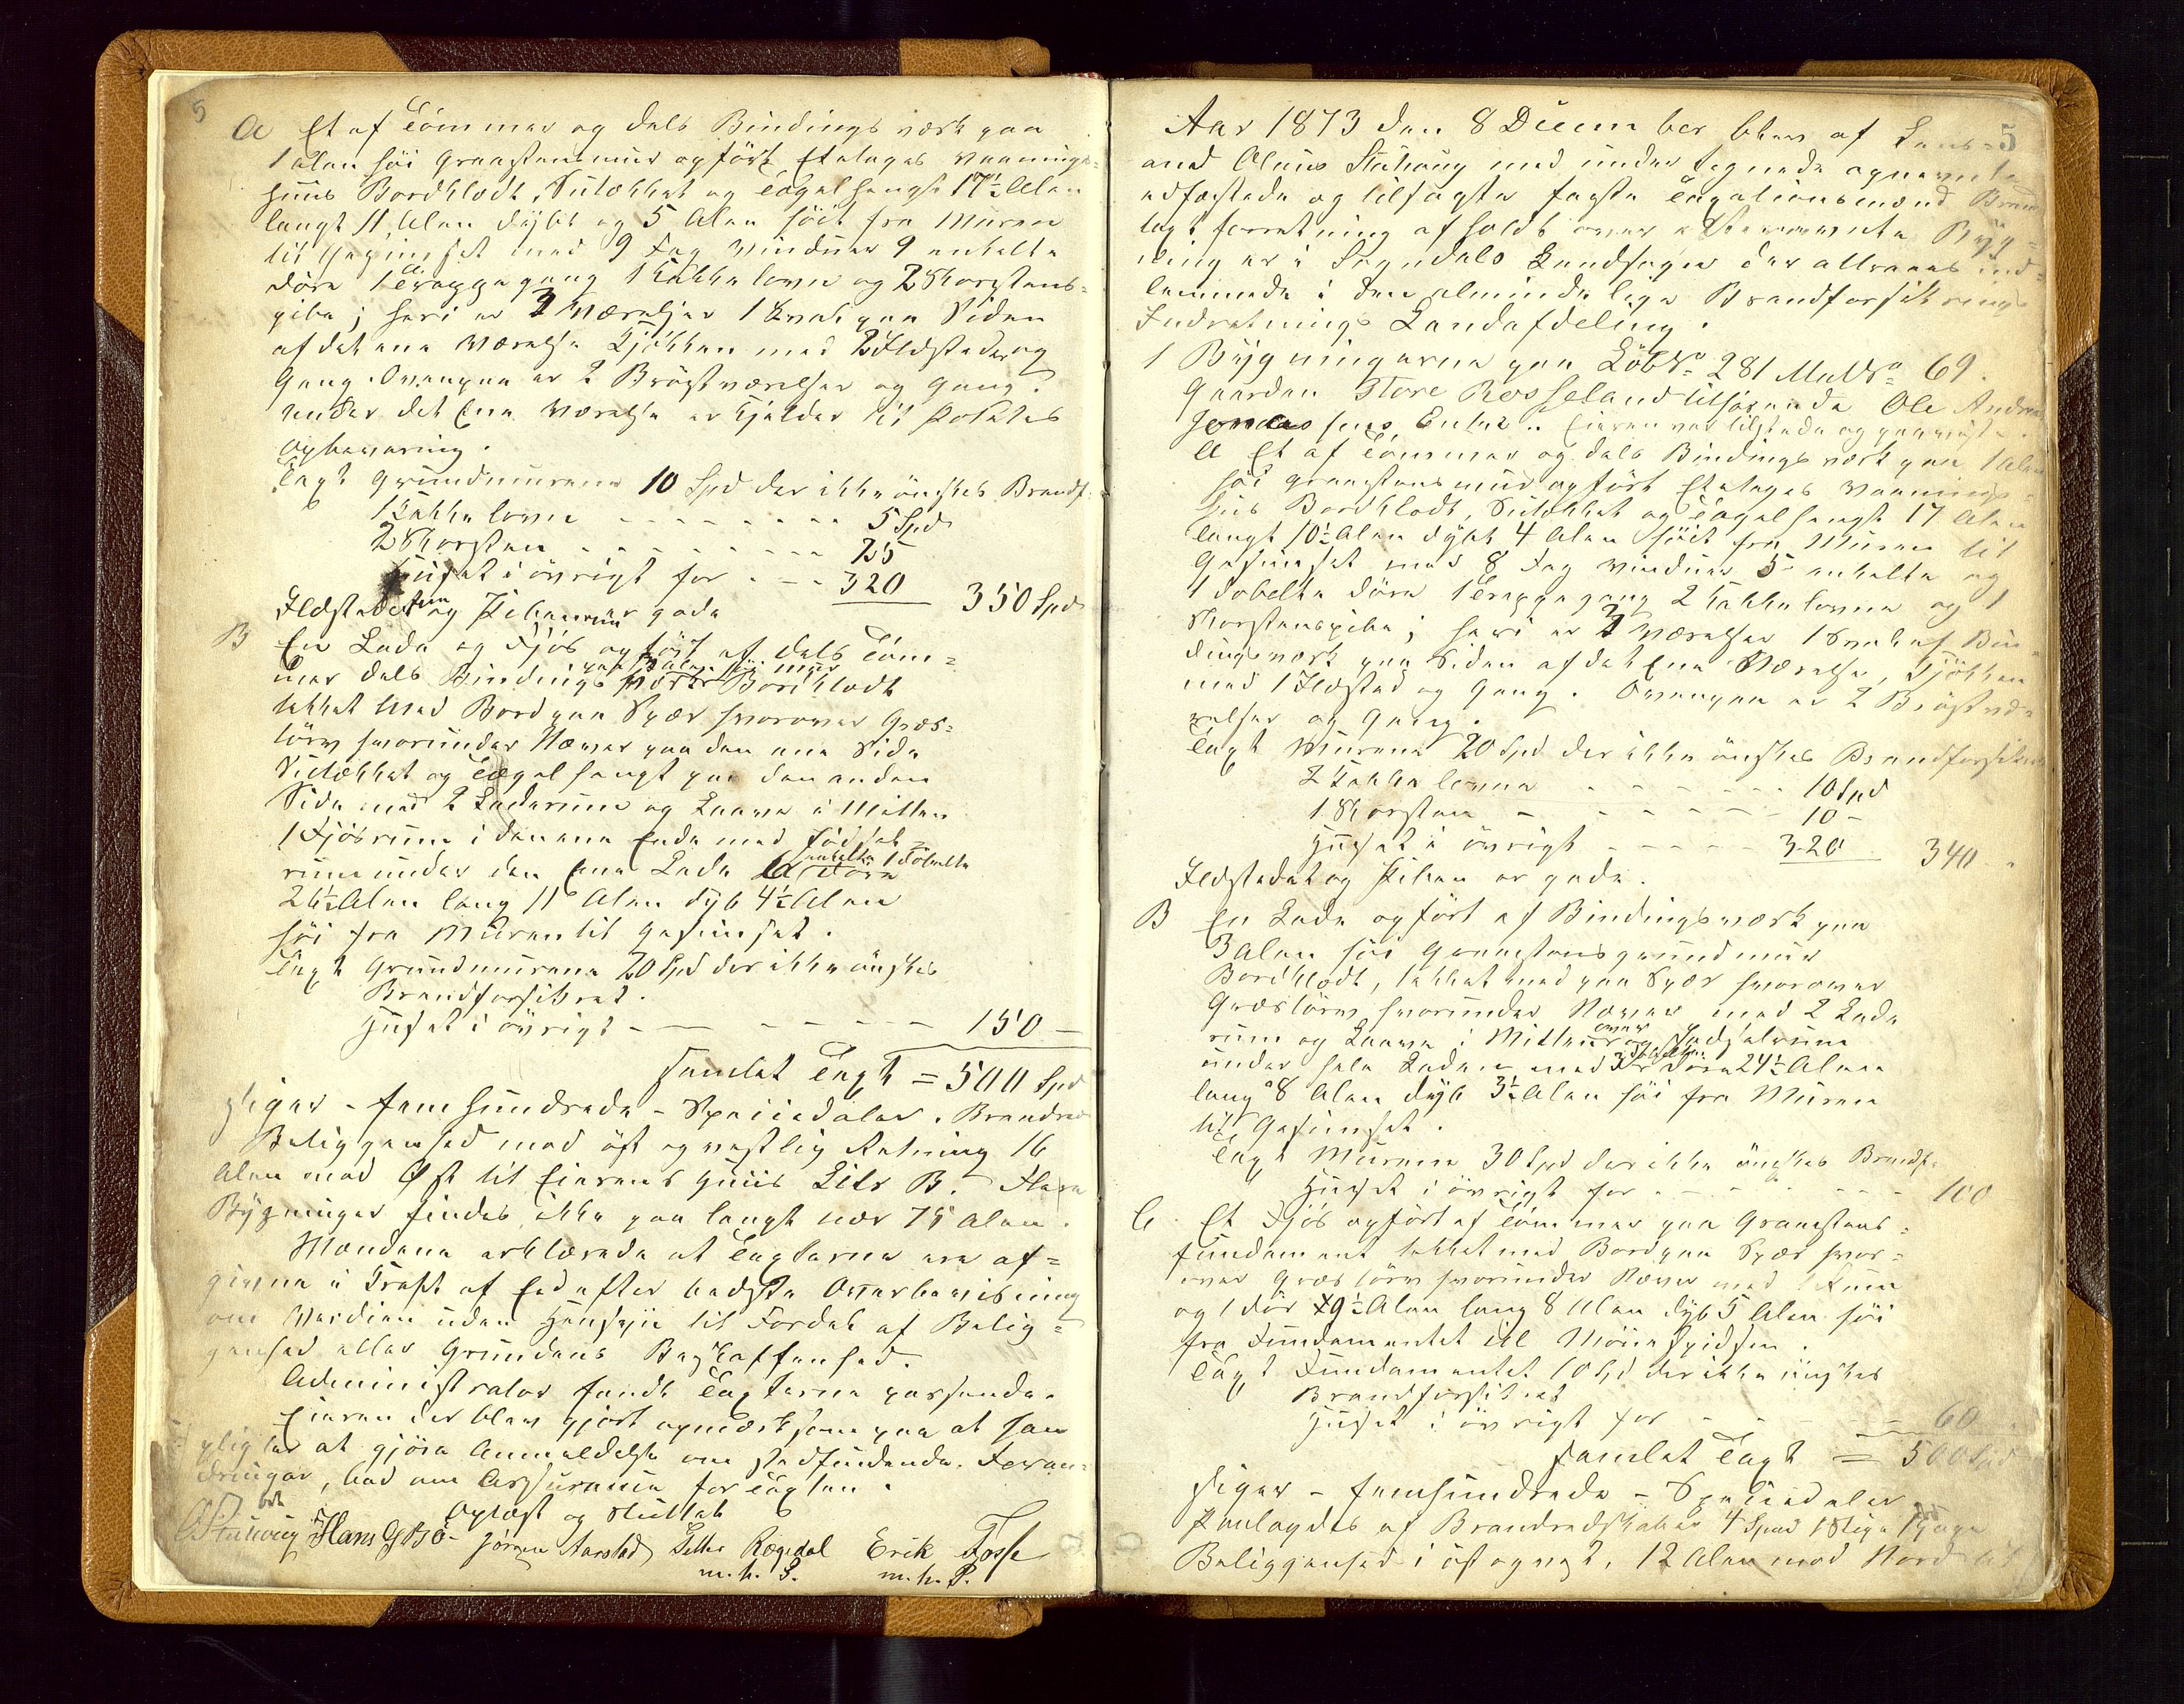 5
A Et af Tømmer og dels Bindingsværk paa
1 Alen høi Graastensmuur opført Etetages Vaanings=
huus Bordklædt, Sutækket og Tagelhængt 17½ Alen
langt 11 Alen dybt og 5 Alen høit fra Muren
til Gesimset med 9 Fag Vinduer 9 enkelte
Døre 1 Trappegang 1 Kakkelovn og 2 Skorstens=
pibe; heri er 3 Værelser 1 Svale paa Siden
af det ene Værelse Kjøkken med 2 Ildsteder og
Gang. Ovenpaa er 2 Brøstværelser og Gang.
Under det Ene Værelse er Kjelder til Potetes
Opbevaring.
Taxt Grundmurene 10 Spd der ikke ønskes Brandf.
1 Kakkelovn - - - - 5 Spd
2 Skorsten - - - - 25
Huset i øvrigt for - - - 320 350 Spd
Ildstederne og Piberne er gode
B En Lade og Fjøs opført af dels Tøm=
mer dels Bindingsværk Bordklædt
tækket med Bord paa Spær hvorover Græs=
törv hvorunder Næver paa den ene Side
Sutækket og Tagelhængt paa den anden
Side med 2 Laderum og Laave i Midten
1 Fjøsrum i den ene Ende med Fødsel
rum under den Ene Lade 6 enkelte 1 dobelte Døre
26½ Alen lang 11 Alen dyb 4½ Alen
høi fra Muren til Gesimset.
Taxt Grundmurene 20 Spd der ikke ønskes
Brandforsikret.
Huset i øvrigt - - - - - 150 -
Samlet Taxt = 500 Spd
siger - femhundrede - Speciedaler. Brandred
Beliggenhed mod øst og vestlig Retning 16
Alen mod Øst til Eierens Huus Litr B. Flere
Bygninger findes ikke paa langt nær 75 Alen.
Mændene erklærede at Taxterne ere af=
givne i Kraft af Eed efter bedste Overbeviisning
om Værdien uden Hensyn til Fordel af Belig=
genhed eller Grundens Beskaffenhed.
Administrator fandt Taxterne passende.
Eieren der blev gjort opmærksom paa at han
pligter at gjøre Anmeldelse om stedfindende Foran=
dringer, bad om Assurance for Taxten.
Oplæst og sluttet
OStuhoug Hans G Bö Jörgen Aarstad Peder Rægedal Erik Fosse
m. h. P. m. h. P.
5
Aar 1873 den 8 December blev af Lens=
mand Olaus Stuhoug med undertegnede opnævnte
edfæstede og tilsagte faste Taxationsmænd Brand
taxtforretning afholdt over efternævnte Byg=
ninger i Sogndals Landsogn der attraaes ind=
lemmede i den almindelige Brandforsikrings
Indretnings Landafdeling.
1 Bygningerne paa Löb No 281 Mat No 69.
Gaarden Store Rosseland tilhørende Ole Andreas
Jonassens Enke. Eieren var tilstede og paaviste.
A Et af Tømmer og dels Bindingsværk paa 1 Alen
høi Graastensmuur opført Etetages Vaanings=
huus Bordklædt, Sutækket og Tagelhængt 17 Alen
langt 10½ Alen dybt 4 Alen høit fra Muren til
Gesimset med 8 Fag Vinduer 5 enkelte og
1 dobelte Døre 1 Trappegang 2 Kakkelovne og 1
Skorstenspibe; heri er 3 Værelser 1 Svale af Bin=
dingsværk paa Siden af det Ene Værelse, Kjøkken
med 1 Ildsted og Gang. Ovenpaa er 2 Brøstvæ=
relser og Gang.
Taxt Murene 20 Spd der ikke ønskes Brandforsikret
2 Kakkelovne - - - - 10 Spd
1 Skorsten - - - - 10 -
Huset i øvrigt - - - - 320 340 -
Ildstedet og Piben er gode.
B En Lade opført af Bindingsværk paa
3 Alen høi Graastensgrundmuur
Bordklædt, tækket med paa Spær hvorover
Græstörv hvorunder Næver med 2 Lade
rum og Laave i Midten over og Fødselrum
under hele Laden med 3 dobelte Døre 24½ Alen
lang 8 Alen dyb 3½ Alen høi fra Muren
til Gesimset.
Taxt Murene 30 Spd der ikke ønskes Brandf.
Huset i øvrigt for - - - - 100
C. Et Fjøs opført af Tømmer paa Graastens=
fundament tækket med Bord paa Spær hvor=
over Græstörv hvorunder Næver med 1 Rum
og 1 Dör 9½ Alen lang 8 Alen dyb 5 Alen høi
fra Fundamentet til Mønespidsen.
Taxt Fundamentet 10 Spd der ikke ønskes
Brandforsikret
Huset i øvrigt for - - - - 60
Samlet Taxt = 500 Spd
siger - femhundrede - Speciedaler
Paalagdes af Brandredskaber 4 Spand 1 Stige 1 Hage
Beliggenhed i øst og vest. 12 Alen mod Nord til